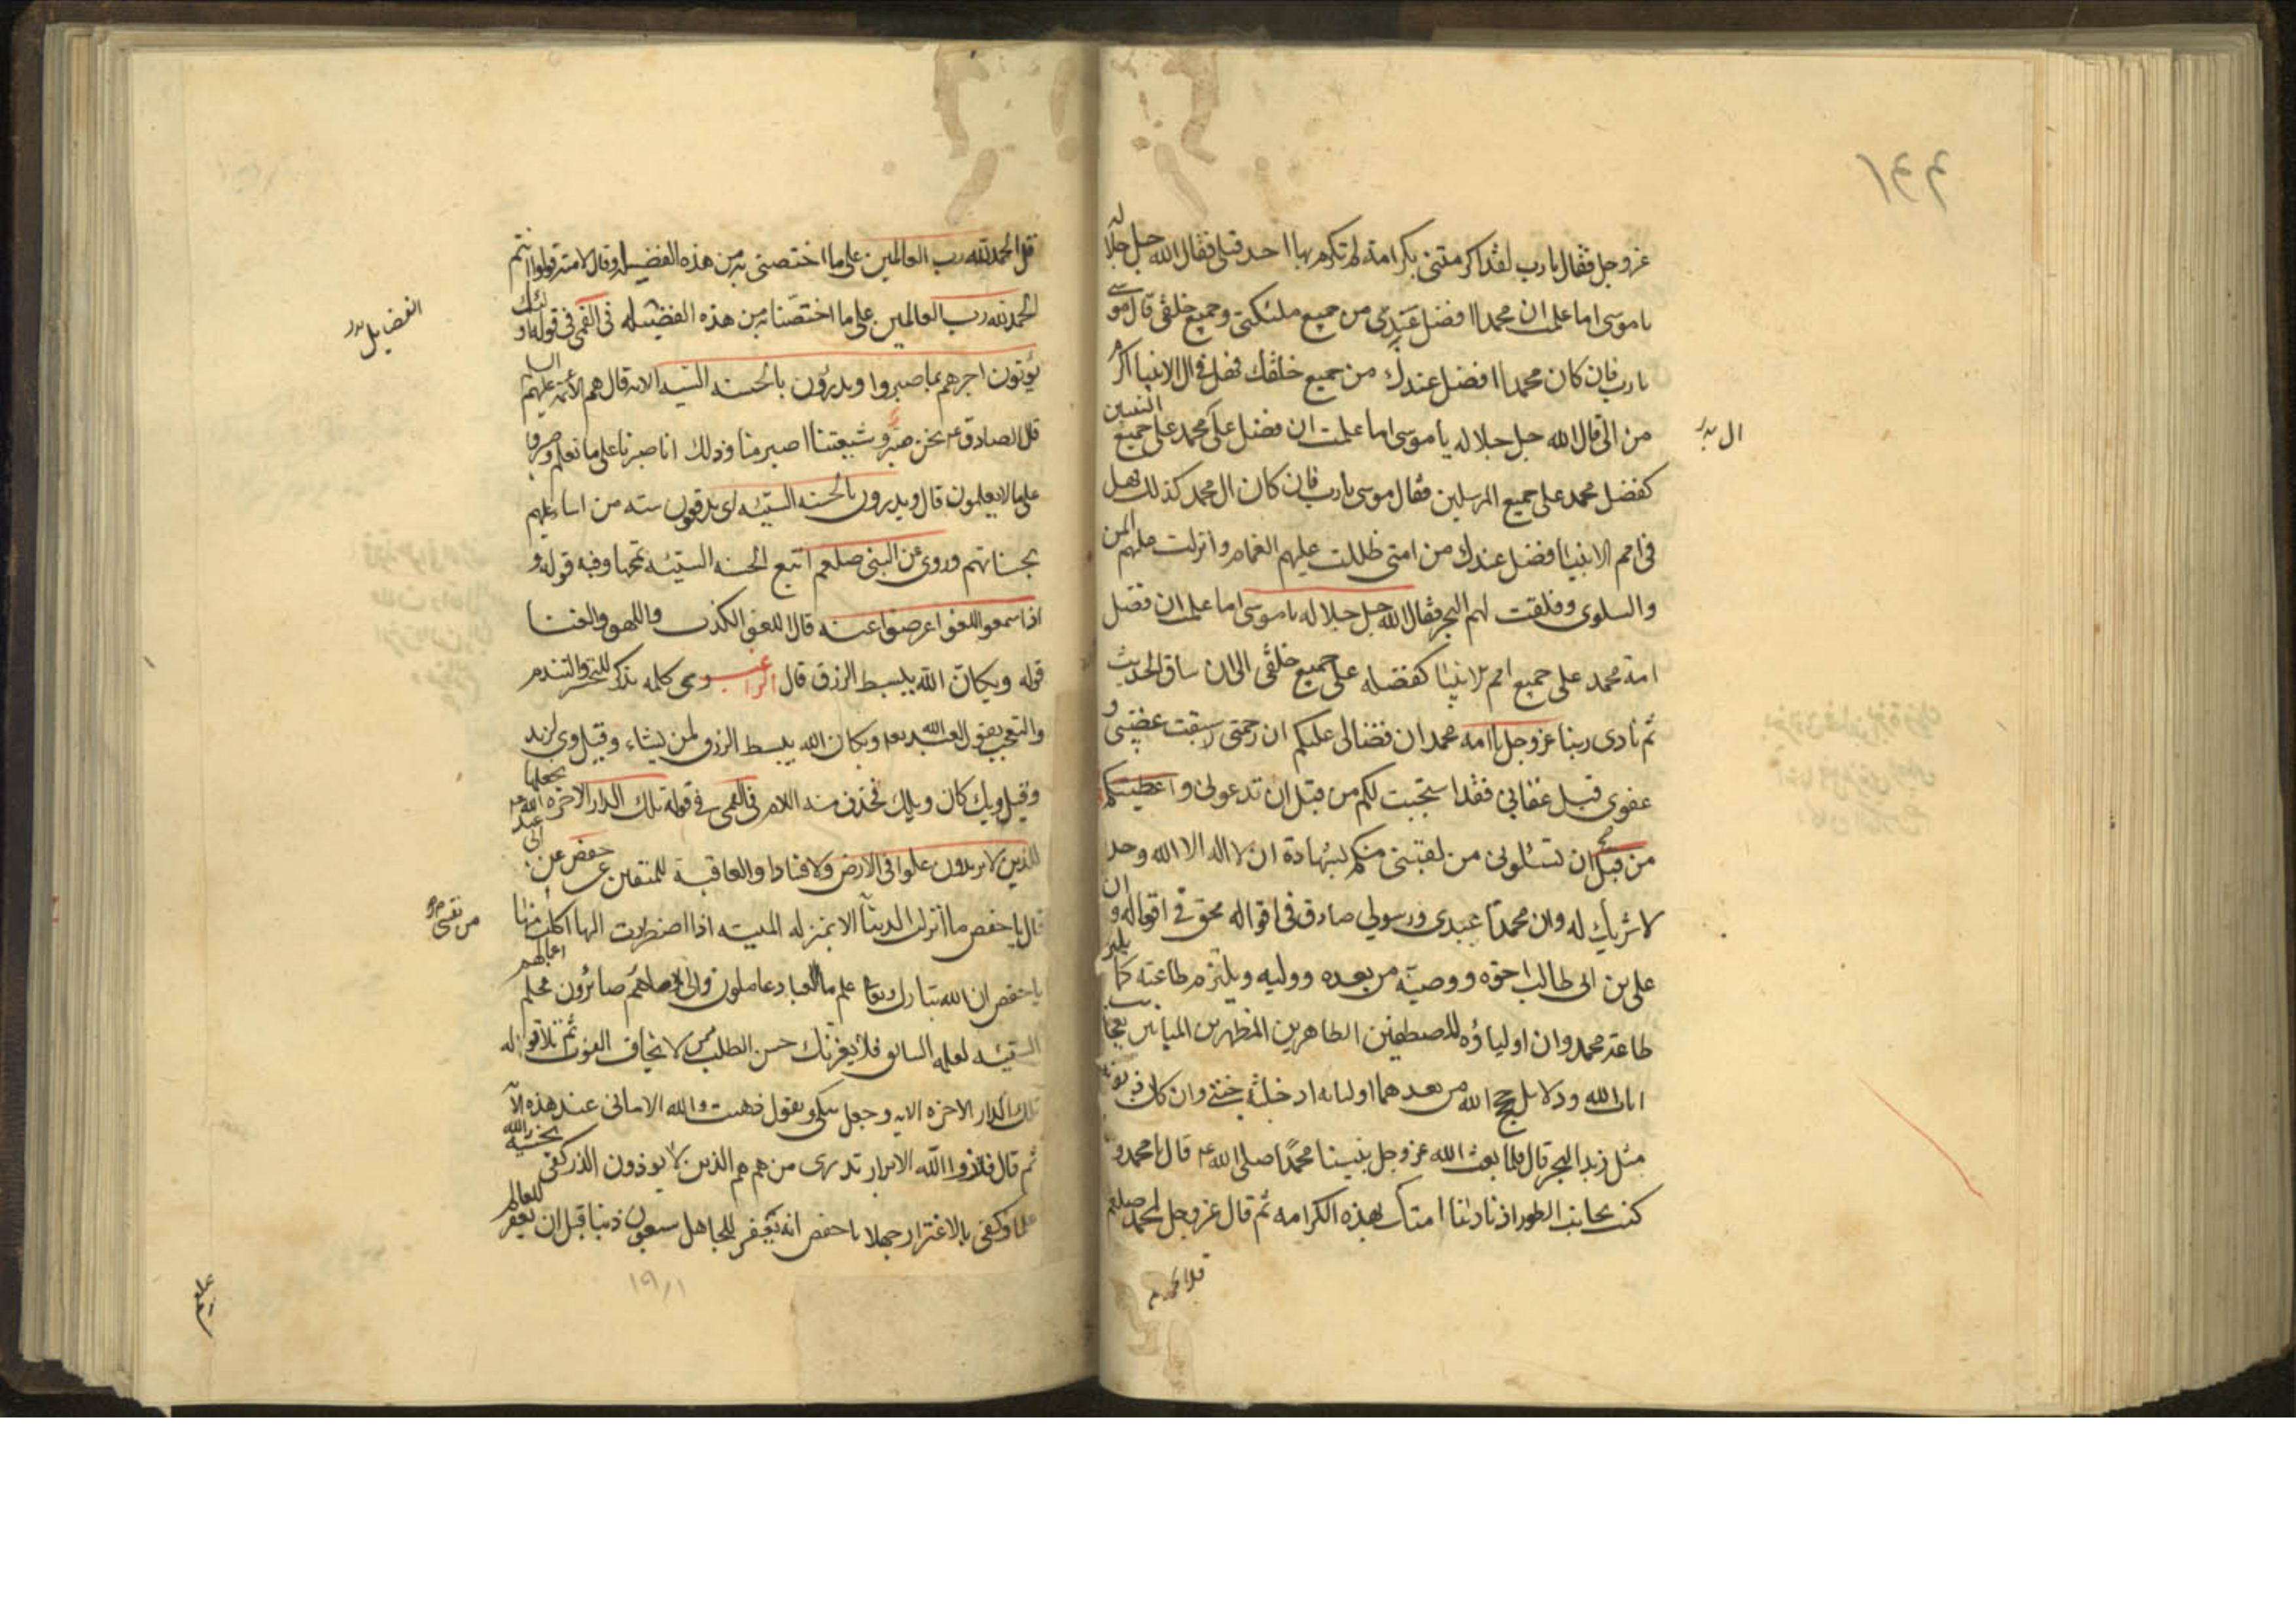 عزوجل فقال يا رب لقد اكرمتنى بكرامة لم تكرم بها احد قبلى فقال الله جل جلاله
يا موسى اما علمت ان محمدا افضل عندى من جميع ملئكتى و جميع خلقى قال موسى
يا رب فان كان محمدا افضل عندك من جميع خلقك فهل فى ال الانبيا اكرم
من الى قال الله جل جلاله يا موسى اما علمت ان فضل على محمد على جميع النبيين
ال بدل
كفضل محمد على جميع المرسلين فقال موسى يا رب فان كان ال محمد كذلك فهل
فى امم الانبيا افضل عندك من امتى ظللت عليهم الغمام و انزلت عليهم المن
والسلوى وفلقت لهم البحر فقال الله جل جلاله يا موسى اما علمت ان فضل
امة محمد على جميع امم الانبيا كفضله على جميع خلقى الى ان ساق الحديث
ثم نادى ربنا عزوجل يا امة محمد ان قضائى عليكم ان رحمتى سبقت غضبى و
عفوى قبل عقابى فقد استجبت لكم من قبل ان تدعونى و اعطيتكم
من قبل ان تسئلونى من لقينى منكم بشهادة ان لا اله الا الله وحده
لا شريك له وان محمدا عبدى و رسولى صادق فى اقواله محق فى افعاله و ان
على بن ابى طالب اخوه و وصيه من بعده و وليه و يلتزم طاعته كما يلتزم
طاعة محمد وان اولياؤه المصطفين الطاهرين المطهرين الميامين بعجائب
ايات الله ودلايل حجج الله من بعدهما اوليائه ادخلته جنتى وان كان ذنوبه
مثل زبد البحر قال فلما بعث الله عزوجل نبينا محمدا صلى الله ع قال يا محمد و
كنت بجانب الطور اذ نادينا امتك بهذه الكرامه ثم قال عزوجل لمحمد صلعم
قل الحمد لله
قل الحمد لله رب العالمين على ما اختصنى به من هذه الفضيلة وقال لامته قولوا انتم
الحمد لله رب العالمين على ما اختصنا به من هذه الفضيله فى القمى فى قوله اولئك
الفضايل بدل
يؤتون اجرهم بما صبروا و يدرؤن بالحسنه السيئه الايه قال هم الائمة عليهم السلم
قال الصادق ع نحن صبر و شيعتنا اصبر منا و ذلك انا صبرنا على ما نعلم و صبروا
على ما لا يعلمون قال و يدرون بالحسنه السيئه اى يدفعون سيئه من اساء اليهم
بحسناتهم وروى عن النبى صلعم اتبع الحسنه السيئه تمحها وفيه قوله و
اذا سمعوا اللغو اعرضوا عنه قال اللغو الكذب واللهو والغنا
قوله ويكان الله يبسط الرزق قال الراغب وى كلمه تذكر للتحسر والتندم
والتعجب يقول العبد بعد ويكان الله يبسط الرزق لمن يشاء و قيل وى لزيد
وقيل ويك كان ويلك فحذف منه اللام فى القمى فى قوله تلك الدار الاخره نجعلها
للذين لا يريدون علوا فى الارض ولا فسادا والعاقبة للمتقين عن حفص عن ابى عبد الله ع
قال يا حفص ما انزلت الدنيا الا بمنزله الميته اذا اضطررت اليها اكلت منها
من نفسى
يا حفص ان الله تبارك وتعا علم ما العباد عاملون والى ما هم صائرون فحلم
السيئه لعلمه السابق فلا يغرنك حسن الطلب ممن لا يخاف الفوت ثم تلا قوله
تلك الدار الاخره الايه وجعل يبكى و يقول ذهبت والله الامانى عند هذه الا
ثم قال فاز والله الابرار تدرى من هم هم الذين لا يوذون الذر كفى بخشية الله
علما وكفى بالاغترار جهلا يا حفص انه يغفر للجاهل سبعون ذنبا قبل ان يغفر للعالم